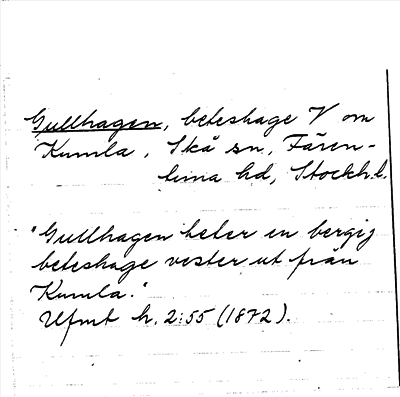 Gullhagen, beteshage V om
Kumla, Skå sn, Fären-
tuna hd, Stockh.l.
"Gullhagen heter en bergig
beteshage vester ut från
Kumla."
Ufmt h. 2:55 (1872).